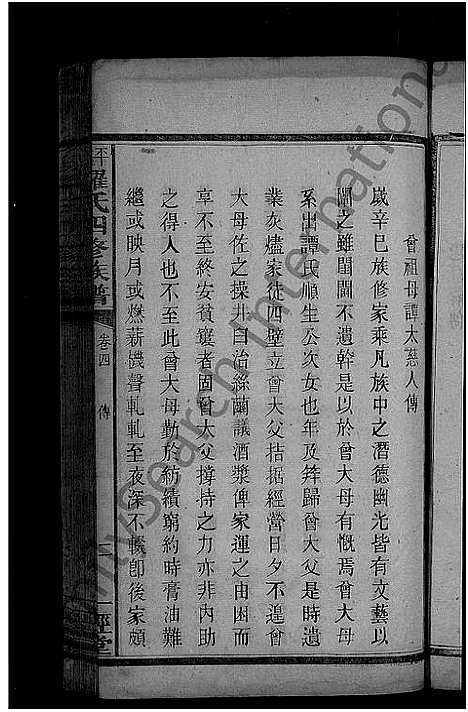 曾祖母譚太慈人傳
歲辛巳族修家乘凡族中之潛德幽光皆有文藝以
闡之雖閨閫不遺幹是以於曾大母有慨焉曾大母
系出譚氏順生公次女也年及笄歸曾大父是時遺
業灰燼家徒四壁立曾大父拮据經營日夕不遑曾
大母佐之操井臼治絲蘭議酒漿俾家運之由困而
享不至終安貧窶者固曾大父撐持之力亦非內助
之得人也不至此曾大母勤於紡績窮約時膏油難
繼或映月或燃薪機聲軋軋至夜深不輟卽後家頗
羅氏四修族譜
卷四
傳
二
經堂
mysearch International